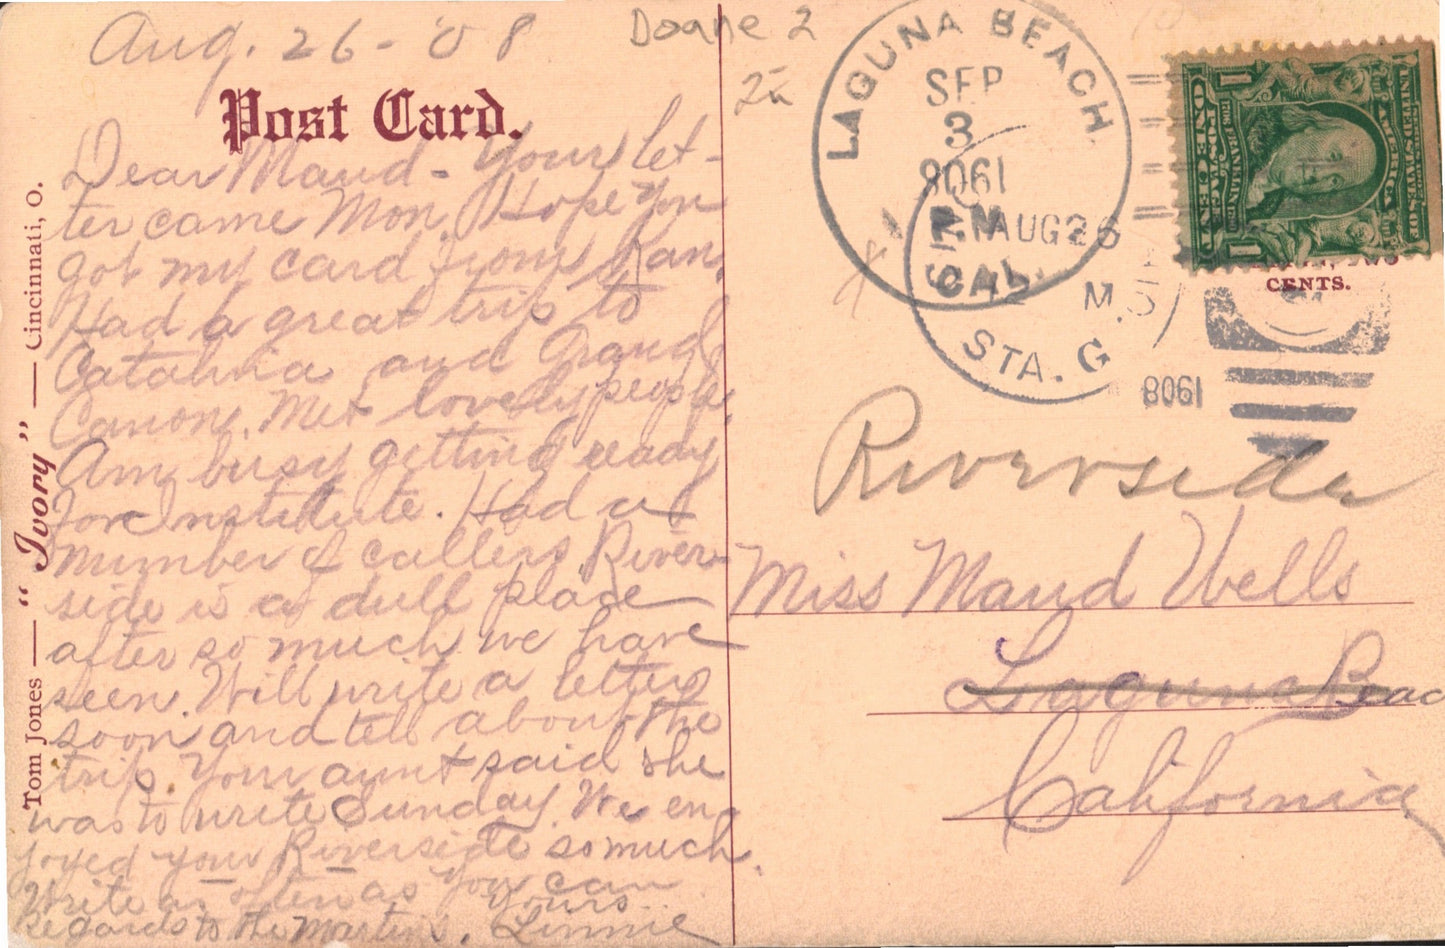 Aug. 26 - '08
Doane 2
Post Card.
Tom Jones — "Ivory" — Cincinnati, O.
Dear Maud - Your let-
ter came Mon. Hope you
got my card from Kan.
Had a great trip to
Catalina and Grand
Canon. Met lovely people
Am busy getting ready
for Institute. Had a
number of callers River-
side is a dull place
after so much we have
seen. Will write a letter
soon and tell about the
trip. Your aunt said she
was to write Sunday. We en-
joyed your Riverside so much.
Write as often as you can
Yours
Regards to the Martins. Linnie
LAGUNA BEACH
SEP
3
1908
CAL.
AUG 26
M.
STA. G
1908
CENTS.
Riverside
Miss Maud Wells
Laguna Beach
California